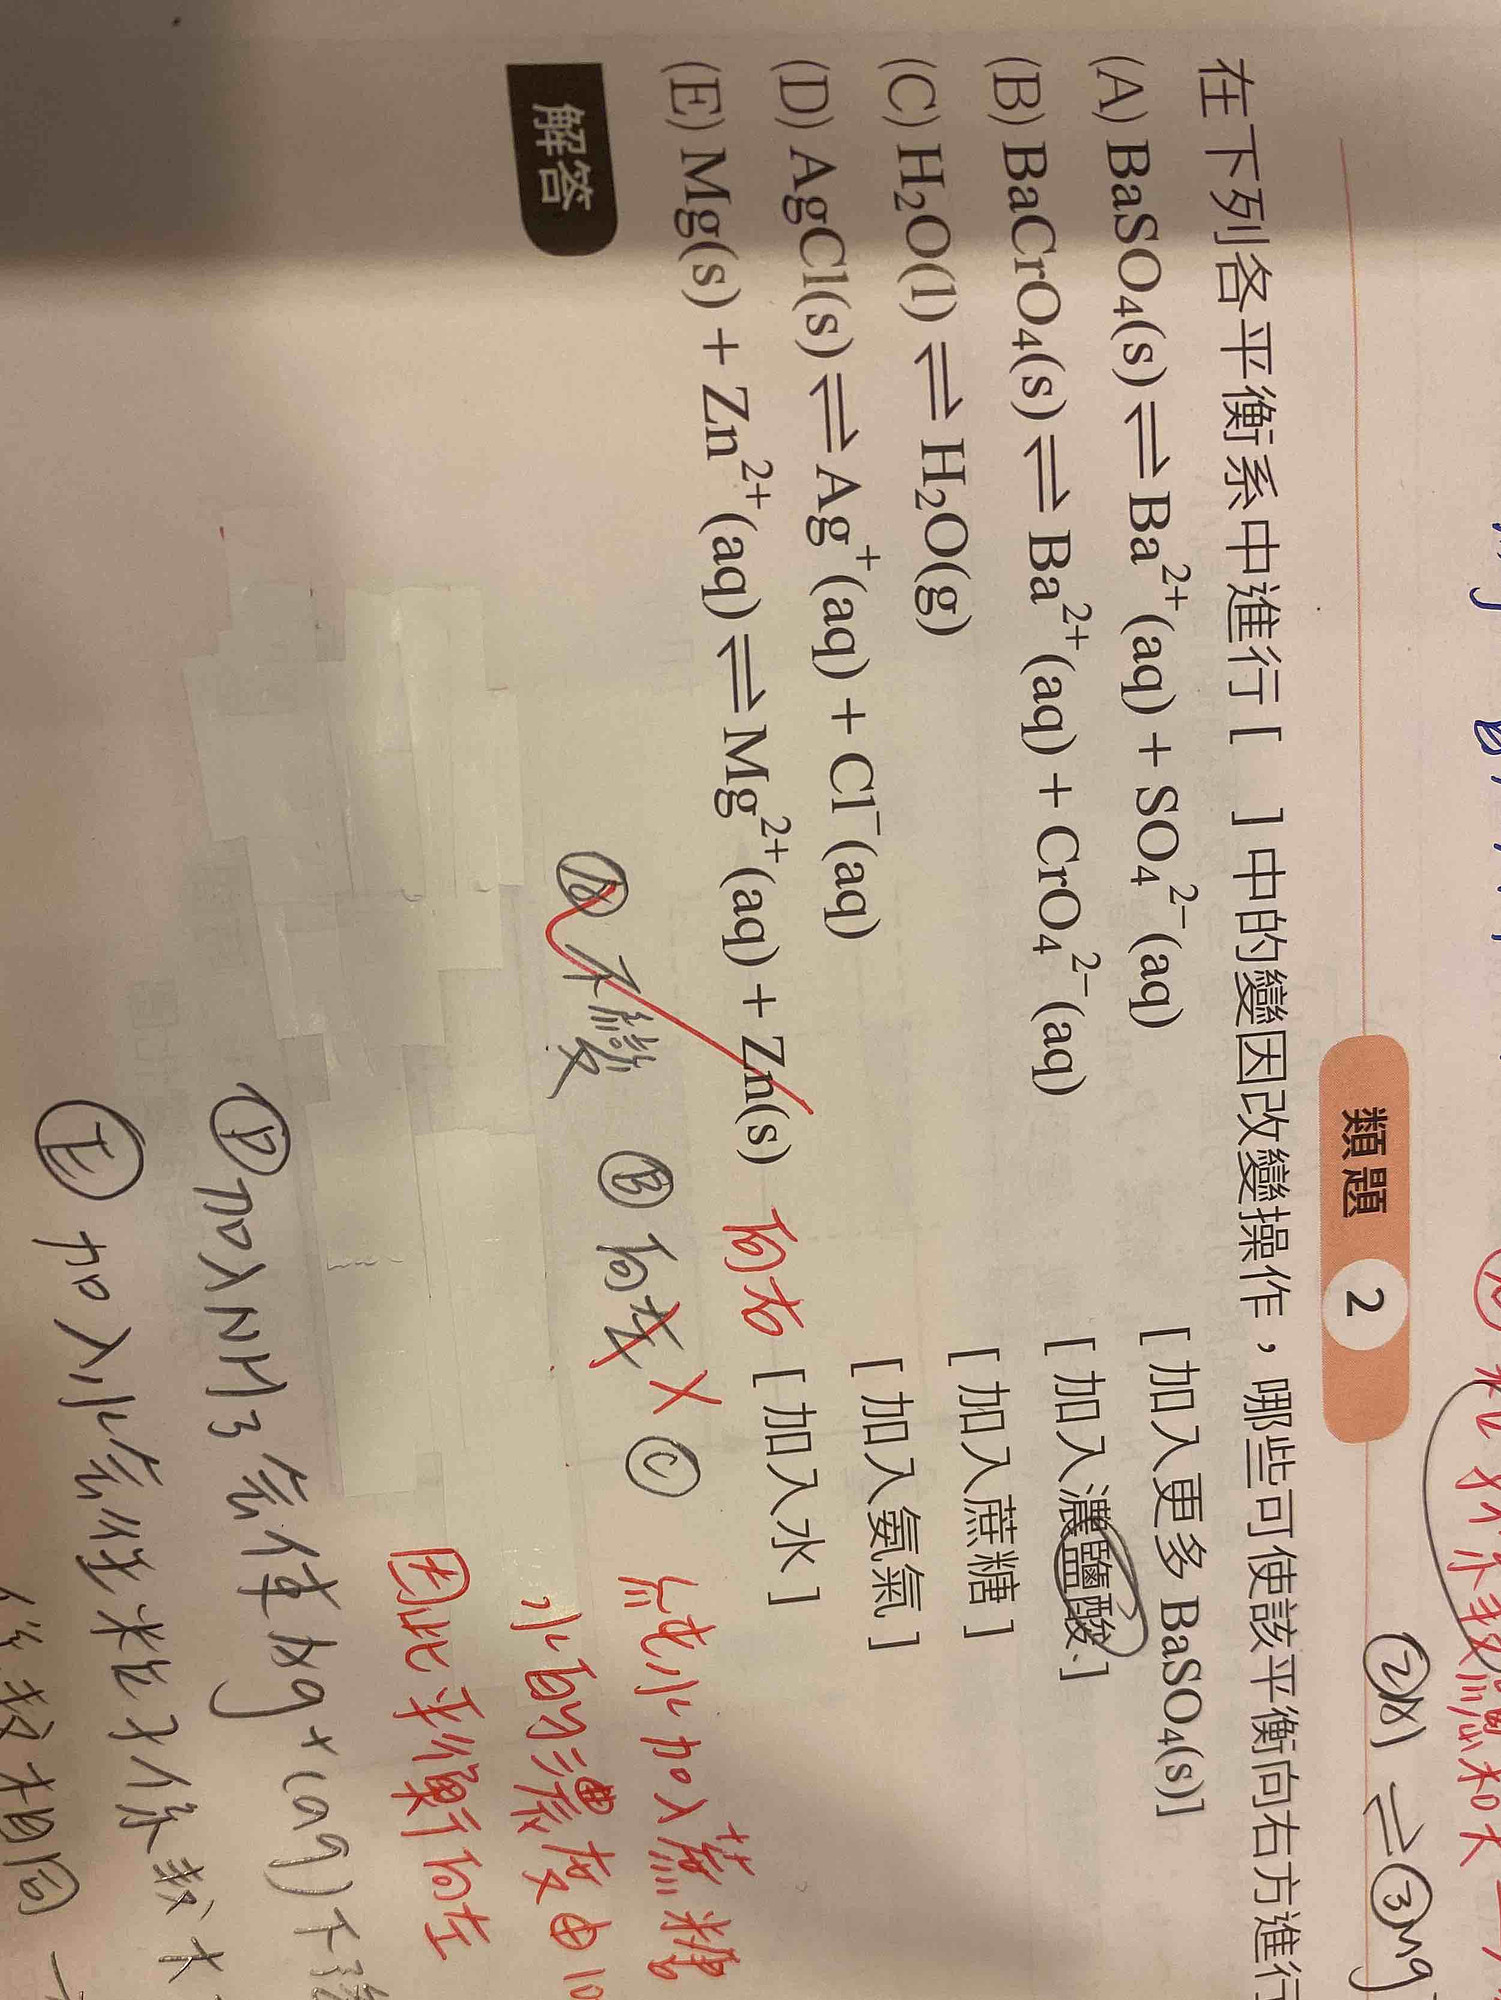 ②(s) ⇌ ③Mg
類題 2
在下列各平衡系中進行[ ]中的變因改變操作，哪些可使該平衡向右方進行
(A) BaSO₄(s) ⇌ Ba²⁺(aq) + SO₄²⁻(aq) [加入更多 BaSO₄(s)]
(B) BaCrO₄(s) ⇌ Ba²⁺(aq) + CrO₄²⁻(aq) [加入濃鹽酸]
(C) H₂O(l) ⇌ H₂O(g) [加入蔗糖]
(D) AgCl(s) ⇌ Ag⁺(aq) + Cl⁻(aq) [加入氨氣]
(E) Mg(s) + Zn²⁺(aq) ⇌ Mg²⁺(aq) + Zn(s) [加入水]
向右
解答
Ⓐ 不變 Ⓑ 向左 X Ⓒ 純水加入蔗糖
水的濃度由10
因此平衡向左
Ⓓ 加入NH3會使Ag+(aq)下降
Ⓔ 加入水會往粒子係數大
係數相同